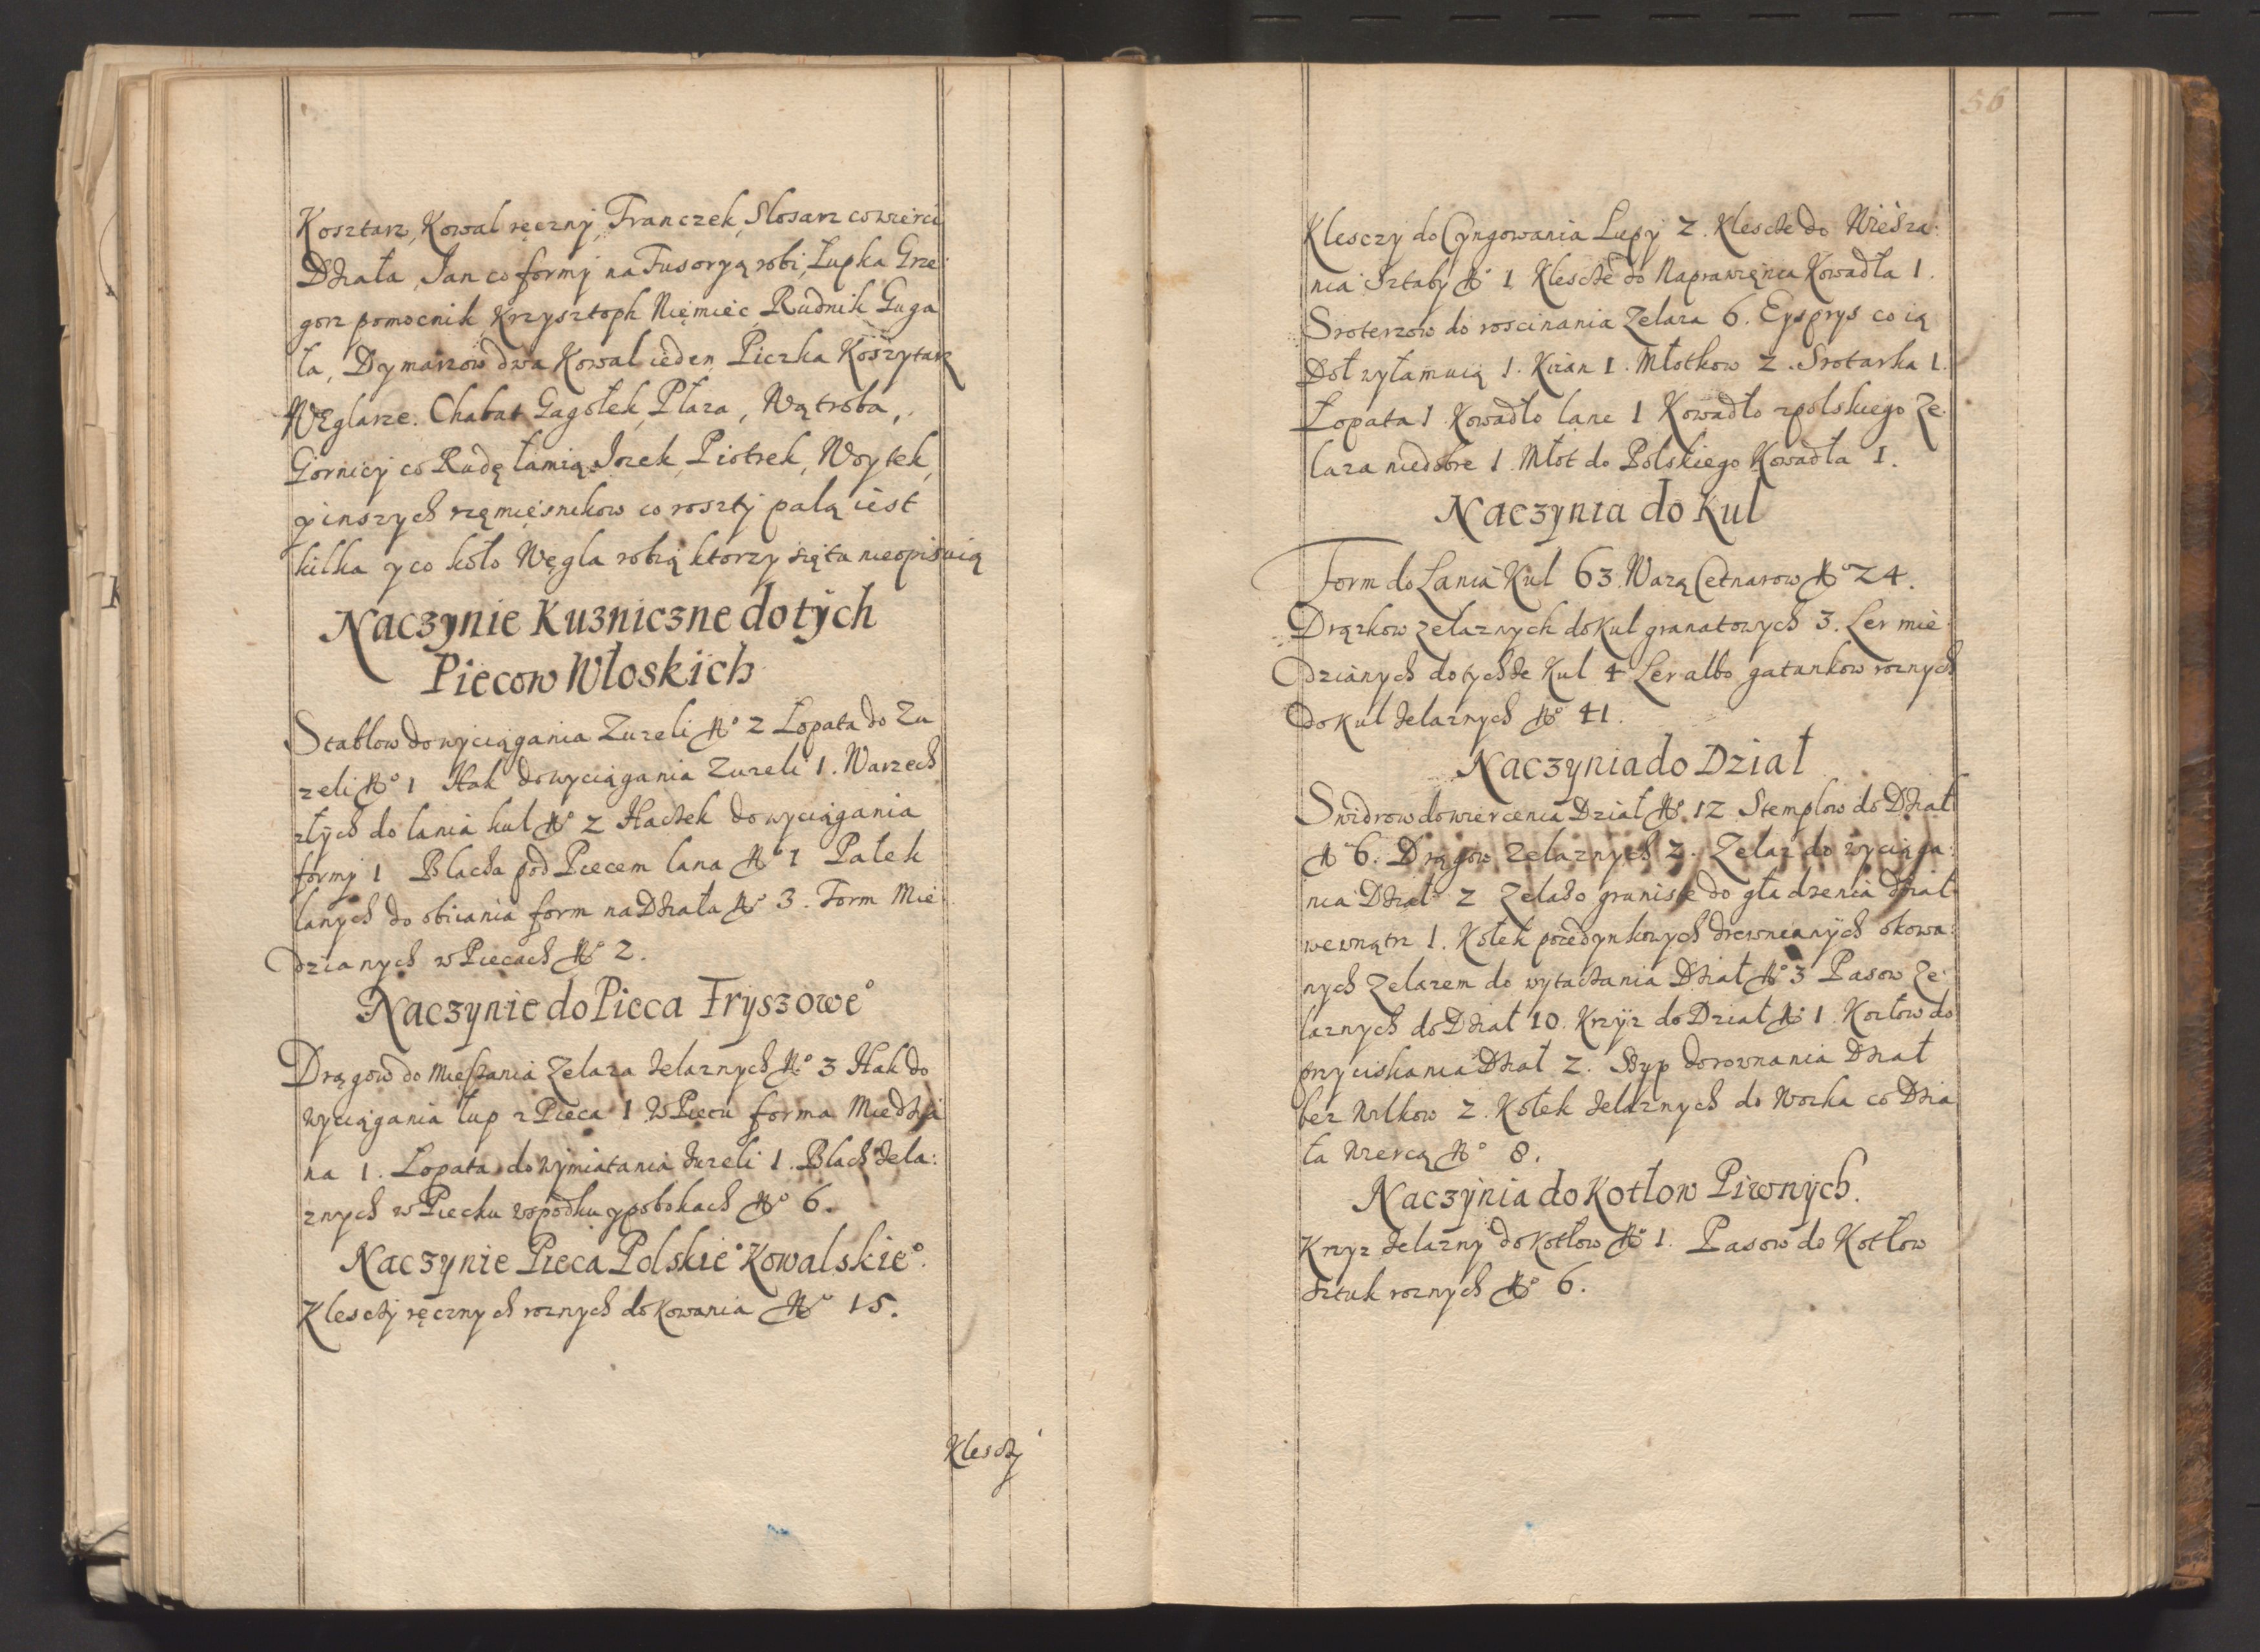 Kosztarz, Kowal ręczny, Franczek, Slosarz co wierci
Działa, Jan co formy na Fusoryą robi, Łupka Grze
gorz pomocnik, Krzysztoph Niemiec, Rudnik Guga
ła, Dymarzow dwa Kowal ieden, Piczka Koszytarz
Węglarze. Chabat Gagołek, Płaza, Wątroba,
Gornicy co Rudę łamią Jozek, Piotrek, Woytek,
y inszych rzęmięsnikow co roszty palą iest
kilka y co koło Węgla robią ktorzy się tu nieopisuią
Naczynie Kuzniczne do tych
Piecow Włoskich
Stablow do wyciągania Zuzeli No 2 Łopata do Zu
zeli No 1 Hak do wyciągania Zuzeli 1. Warzech
złych do lania kul No 2 Haczek do wyciągania
formy 1 Blacha pod Piecem lana No 1 Pałek
lanych do obiiania form na Działa No 3. Form Mie
dzianych w Piecach No 2.
Naczynie do Pieca Fryszoweo
Drągow do Mięszania Zelaza żelaznych No 3 Hak do
wyciągania łup z Pieca 1 W Piecu forma Miedzia
na 1. Łopata do wymiatania żuzeli 1. Blach żela:
znych w Piecku w spodku y po bokach No 6.
Naczynie Pieca Polskieo Kowalskieo.
Kleszczy ręcznych roznych do Kowania No 15.
Kleszczy
56
Klesczy do Cyngowania Lupy 2. Kleszcze do Wiesza:
nia Sztaby No 1 Kleszcze do Naprawięnia Kowadła 1.
Sroterzow do roscinania Zelaza 6. Eysprys co ią
Doł wyłamuią 1. Kizan 1. Młotkow 2. Srotarka 1.
Łopata 1. Kowadło lane 1 Kowadło z polskiego Ze:
laza niedobre 1. Młot do Polskiego Kowadła 1.
Naczynia do Kul
Form do Lania Kul 63. Wazą Cetnarow No 24.
Drązkow zelaznych do kul granatowych 3. Ler mie:
dzianych do tychże Kul 4 Ler albo gatunkow roznych
do kul żelaznych No 41.
Naczynia do Dział
Swidrow do wiercenia Dział No 12 Stemplow do Dział
No 6. Drągow Zelaznych 2. Zelaz do wyciąga:
nia Dział 2 Zelazo graniste do gładzenia Dział
wewnątrz 1. Kołek poiedynkowych drewnianych okowa:
nych Zelazem do wytaczania Dział No 3 Pasow Ze:
laznych do Dział 10. Krzyz do Dział No 1. Kozłow do
przyciskania Dział 2. Szyp do rownania Dział
bez Wilkow 2. Kołek żelaznych do Wozka co Dzia
ła Wiercą No 8.
Naczynia do Kotłow Piwnych.
Krzyz żelazny do Kotłow No 1. Pasow do Kotłow
sztuk roznych No 6.